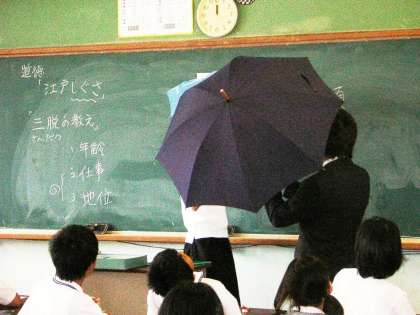 道徳
「江戸しぐさ」
「三脱の教え」
さんだつ
1 年齢
2 仕事
3 地位